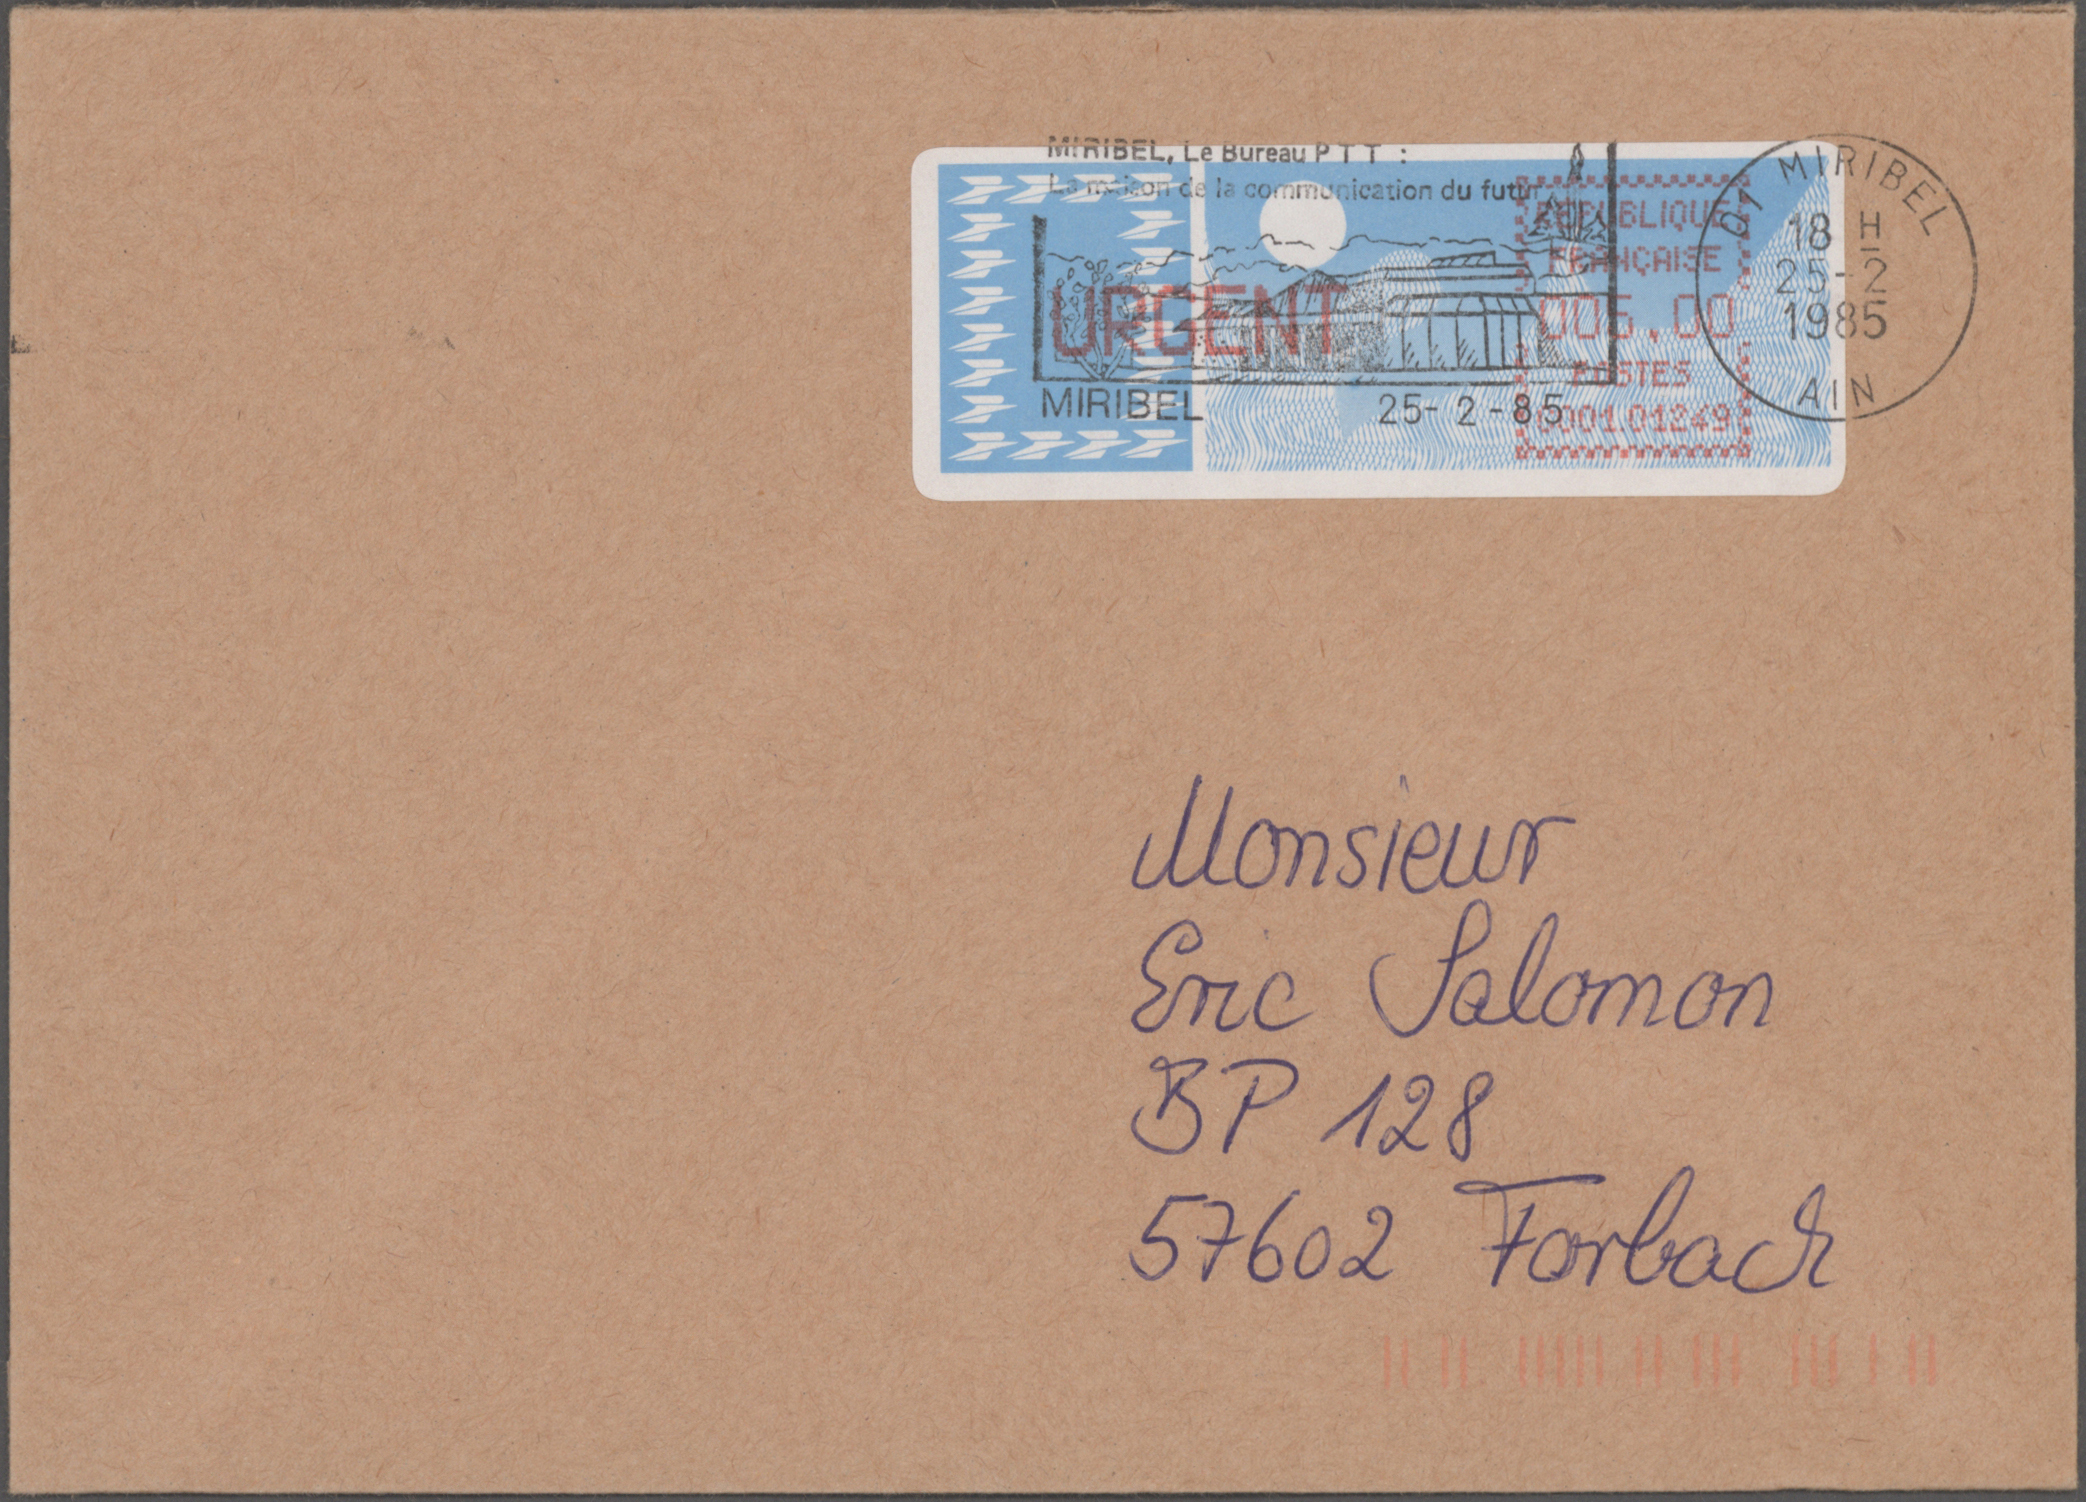 MIRIBEL, Le Bureau PTT :
La maison de la communication du futur
URGENT
MIRIBEL 25-2-85
RÉPUBLIQUE
FRANÇAISE
005,00
POSTES
0001.01249
01 MIRIBEL
18 H
25-2
1985
AIN
Monsieur
Eric Salomon
BP 128
57602 Forbach